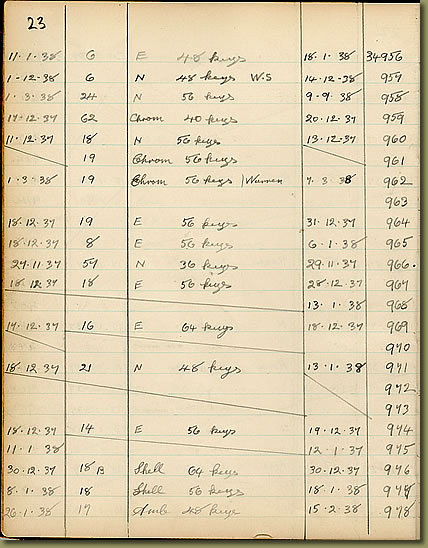 23
11.1.38 6 E 48 keys 18.1.38 34956
1-12-38 6 N 48 keys W.S 14-12-38 959
1.3.38 24 N 56 keys 9-9.38 958
17.12.37 62 Chrom 40 keys 20.12.37 959
11.12.37 18 N 56 keys 13.12.37 960
19 Chrom 56 keys 961
1.3.38 19 Chrom 56 keys Warren 7.3.38 962
963
18.12.37 19 E 56 keys 31.12.37 964
18.12.37 8 E 56 keys 6.1.38 965
27.11.37 57 N 36 keys 29.11.37 966.
18.12.37 18 E 56 keys 28.12.37 967
13.1.38 968
17.12.37 16 E 64 keys 18.12.37 969
970
18.12.37 21 N 48 keys 13.1.38 971
972
973
18.12.37 14 E 56 keys 19.12.37 974
11.1.38 12.1.37 975
30.12.37 18 B Shell 64 keys 30.12.37 976
8.1.38 18 Shell 56 keys 18.1.38
26.1.38 17 48 keys 15.2.38 978